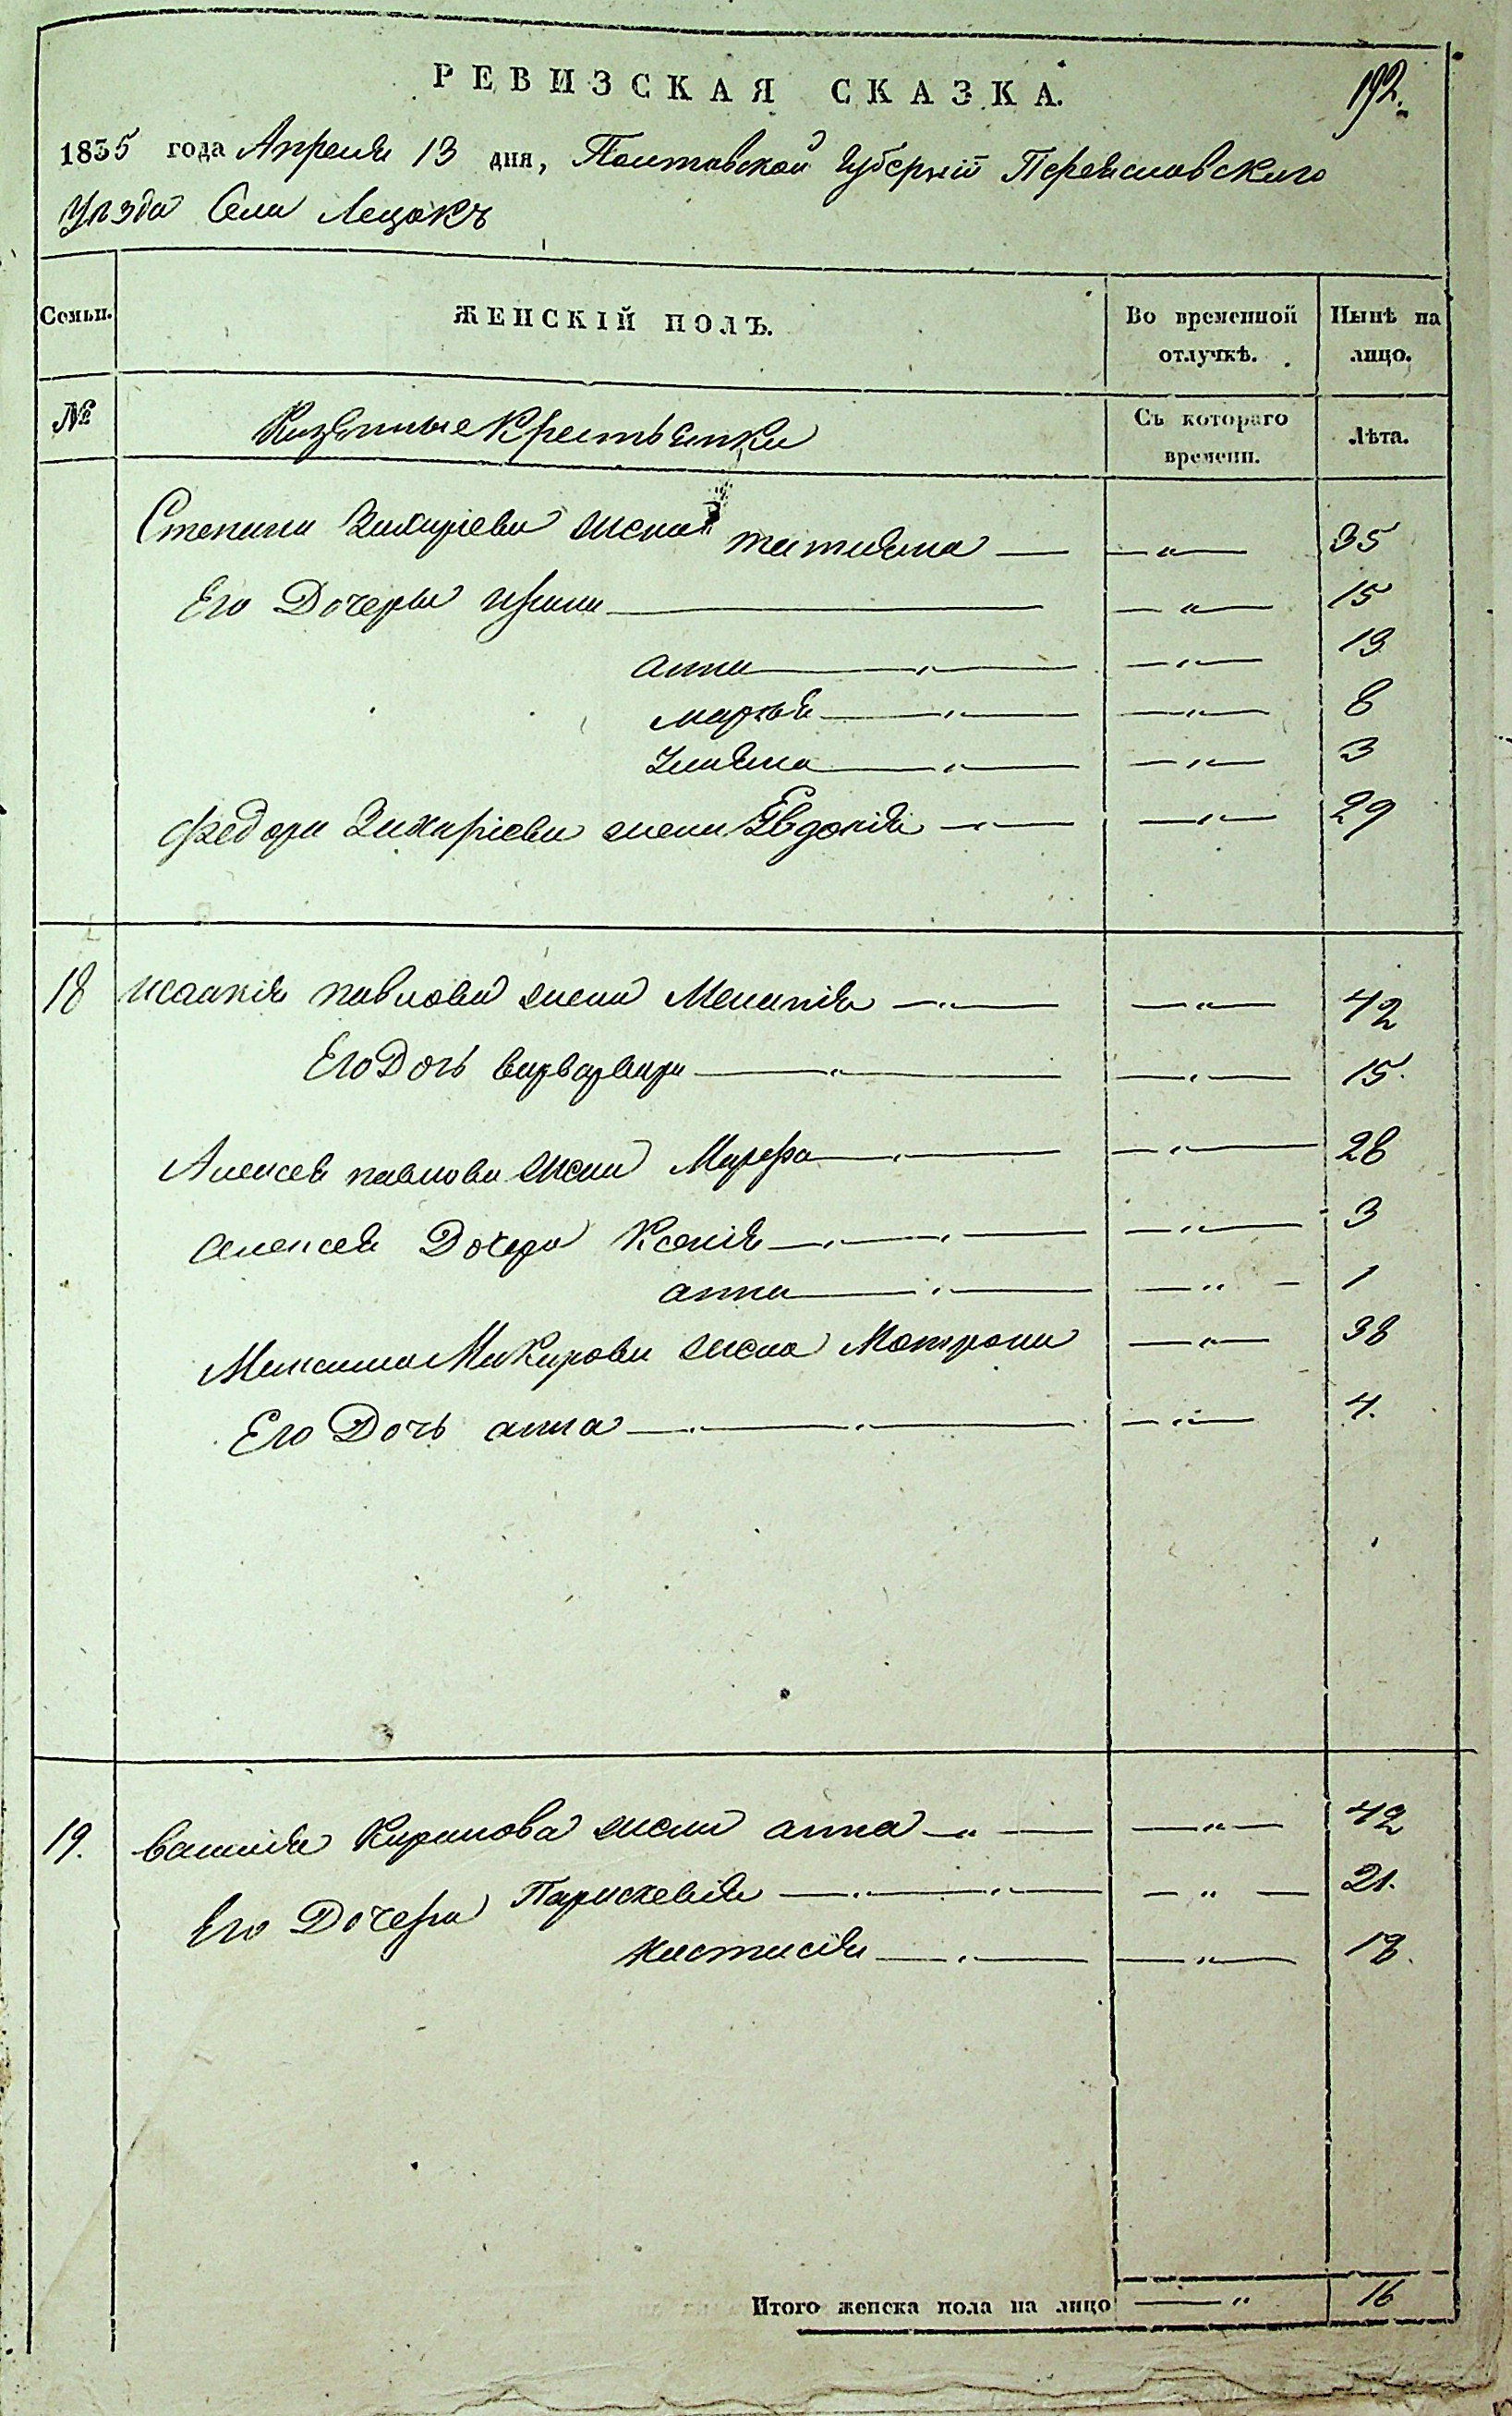 РЕВИЗСКАЯ СКАЗКА.
192.
1835 года Апреля 13 дня, Полтавской губерніи Переясловского
Уѣзда Села Лецокъ
Семьи. ЖЕНСКІЙ ПОЛЪ. Во временной отлучкѣ. Нынѣ на лицо.
№ Казенные Крестьянки Съ котораго времени. Лѣта.
Степана Захаріева жена татияна — „ — 35
Его Дочеры ирина — „ — 15
анна — „ — 13
марья — „ — 8
Улияна — „ — 3
федора Захаріева жена Евдокія — „ — 29
18 исаакія павлова жена Меланія — „ — 42
Его Дочь варвара — „ — 15.
Алексея павлова жена Марфа — „ — 28
алексея Дочера Ксенія — „ — 3
анна — „ — 1
Максима Макарова жена Матрона — „ — 38
Его Дочь анна — „ — 4.
19. василия Кирилова жена анна — „ — 42
Его Дочера Парискевия — „ — 21.
настасія — „ — 18.
Итого женска пола на лицо — „ 16